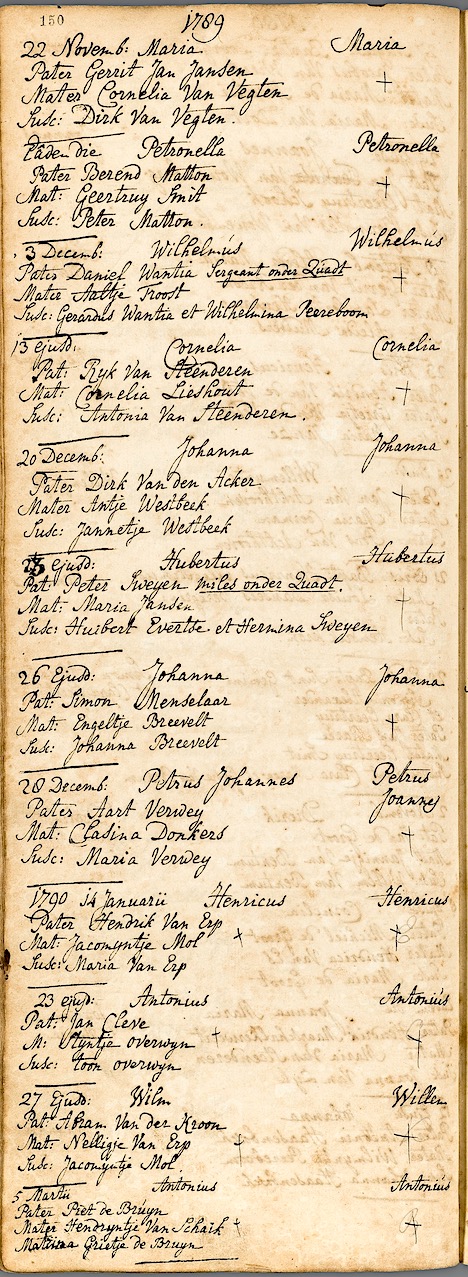 150
1789
22 Novemb: Maria Maria
Pater Gerrit Jan Jansen
Mater Cornelia Van Vegten
Susc: Dirk Van Vegten.
Eâdem die Petronella Petronella
Pater Berend Matton
Mat: Geertruy Smit
Susc: Peter Matton.
3 Decemb: Wilhelmús Wilhelmús
Pater Daniel Wantia Sergeant onder Quadt
Mater Aaltje Troost
Susc: Gerardus Wantia et Wilhelmina Peereboom
13 ejusd: Cornelia Cornelia
Pat: Ryk Van Steenderen
Mat: Cornelia Lieshout
Susc: Antonia Van Steenderen.
20 Decemb: Johanna Johanna
Pater Dirk Van den Acker
Mater Antje Westbeek
Susc: Jannetje Westbeek
ejusd: Hubertus Hubertus
Pat: Peter Sweyen miles onder Quadt.
Mat: Maria Jansen
Susc: Huibert Evertse et Hermina Sweyen
26 Ejusd: Johanna Johanna
Pat: Simon Menselaar
Mat: Engeltje Breevelt
Susc: Johanna Breevelt
28 Decemb: Petrus Johannes Petrus
Joannes
Pater Aart Verwey
Mat: Clasina Donkers
Susc: Maria Verwey
1790 14 Januarii Henricus Henricus
Pater Hendrik Van Erp
Mat: Jacomyntje Mol
Susc: Maria Van Erp
23 ejusd: Antonius Antoniús
Pat: Jan Cleve
M: Styntje overwyn
Susc: toon overwyn
27 Ejusd: Wilm Willem
Pat: Abram Van der Kroon
Mat: Nelligje Van Erp
Susc: Jacomyntje Mol.
5 Martii Antonius Antoniús
Pater Piet de Bruyn
Mater Hendryntje Van Schaik
Grietje de Bruyn